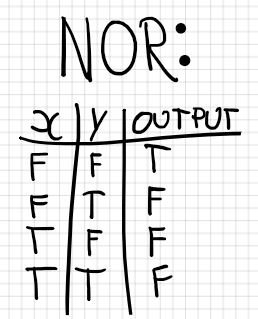 NOR:
x y OUTPUT
F F T
F T F
T F F
T T F